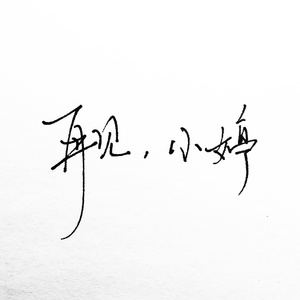 再见，小婷